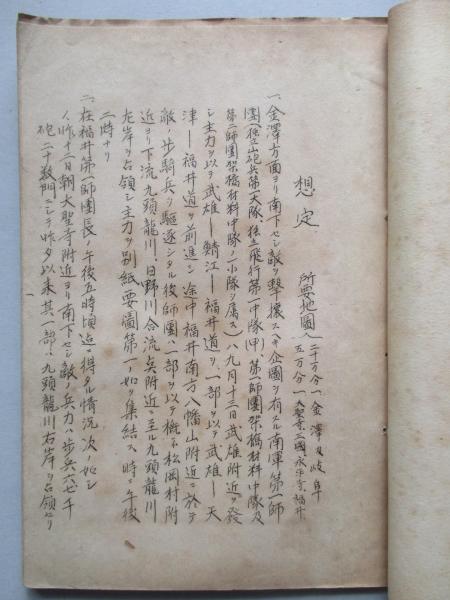 想定
所要地圖
二十万分一 金澤及岐阜
五万分一 大聖寺、三國、永平寺、福井
一、金澤方面ヨリ南下セシ敵ヲ撃攘スヘキ企圖ヲ有スル南軍第一師
團(独立山砲兵第一大隊、独立飛行第一中隊(甲)、第一師團架橋材料中隊及
第二師團架橋材料中隊ノ一小隊ヲ属ス)ハ九月十三日武雄附近ヲ發
シ主力ヲ以テ武雄―鯖江―福井道ヲ、一部ヲ以テ武雄―天
津―福井道ヲ前進シ途中福井南方八幡山附近ニ於テ
敵ノ歩騎兵ヲ駆逐シタル後師團ハ一部ヲ以テ概ネ松岡村附
近ヨリ下流九頭龍川、日野川合流点附近ニ至ル九頭龍川
左岸ヲ占領シ主力ヲ別紙要圖第一ノ如ク集結ス時ニ午後
二時ナリ
二、在福井第一師團長ノ午後五時頃迄ニ得タル情況次ノ如シ
ノ、昨十二日朝大聖寺附近ヨリ南下セシ敵ノ兵力ハ歩兵六七千
砲二十数門ニシテ昨夕以来其一部ハ九頭龍川右岸ヲ占領セリ